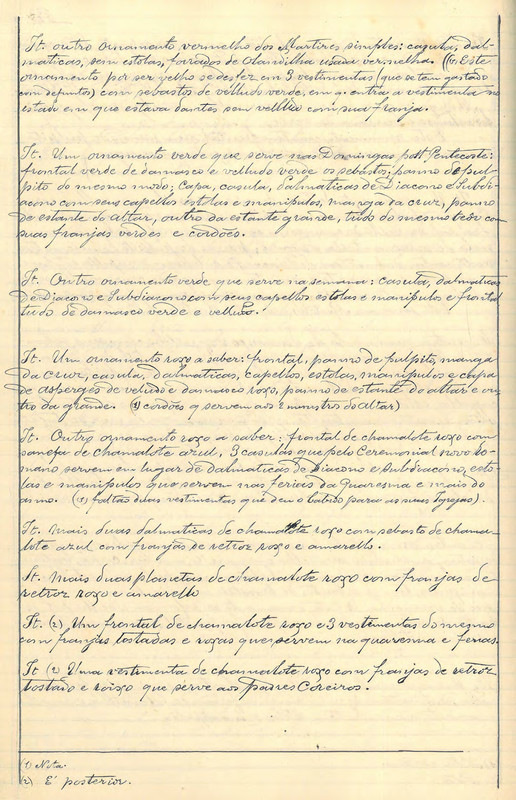 It. outro ornamento vermelho dos Martires simples: casula, dal-
maticas, sem estolas, forrados de olandilha usada vermelha. ((1). Este
ornamento por ser velho se desfez em 3 vestimentas (que se tem gastado
com defuntos) com sebastos de velludo verde, em q. entra a vestimenta no
estado em que estava dantes sem velludo com sua franja.
It. Um ornamento verde que serve nas Domingas post Pentecoste:
frontal verde de damasco e velludo verde os sebastos; panno de pul-
pito do mesmo modo; capa, casula, dalmaticas de Diacono e Subdi-
acono com seus capellos estolas e manipulos, manga da cruz, panno
de estante do Altar, outro da estante grande, tudo do mesmo theor com
suas franjas verdes e cordões.
It. Outro ornamento verde que serve na semana: casula, dalmaticas
de Diacono e Subdiacono com seus capellos estolas e manipulos e frontal
tudo de damasco verde e velludo.
It. Um ornamento roxo a saber: frontal, panno de pulpito, manga
da cruz, casula, dalmaticas, capellos, estolas, manipulos e capa
de asperges de veludo e damasco roxo, panno de estante do altar e ou-
tro da grande. (1) cordões q servem aos 2 ministros do altar)
It. Outro ornamento roxo a saber: frontal de chamalote roxo com
sanefa de chamalote azul, 3 casulas que pelo Ceremonial novo Ro-
mano servem em lugar de dalmaticas de Diacono e Subdiacono, esto-
las e manipulos que servem nas ferias da Quaresma e mais do
anno. (1) faltão duas vestimentas que deu o Cabido para as suas Igrejas).
It. mais duas dalmaticas de chamalote roxo com sebasto de chama-
lote azul com franjas de retroz roxo e amarello.
It. mais duas planetas de chamalote roxo com franjas de
retroz roxo e amarello
It. (2) Um frontal de chamalote roxo e 3 vestimentas do mesmo
com franjas tostadas e roxas que servem na quaresma e ferias.
It (2) Uma vestimenta de chamalote roxo com franjas de retroz
tostado e roixo que serve aos padres Coreiros.
(1) Nota.
(2) E' posterior.